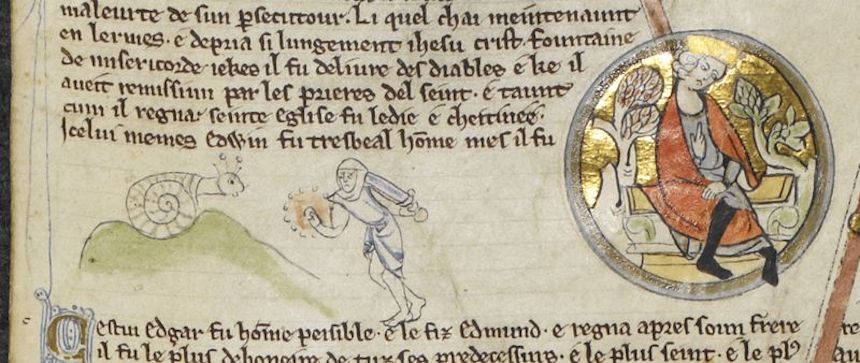 maleurte de sun ꝑsecutour. Li quel chai meintenaunt
en lermes. e depria si lungement ihesu crist. fountaine
de misericorde. iekes il fu deliure des diables e ke il
aueit remissiun par les prieres del seint. e taunt
cum il regnat seinte eglise fu ledie e chettiuee.
Icelui memes edwin fu tresbeal home mes il fu
Cestui edgar fu home peisible. e le fiz edmund. e regna apres soun frere
il fu le plus de tuz ses predecessurs. e le plus seint. e le